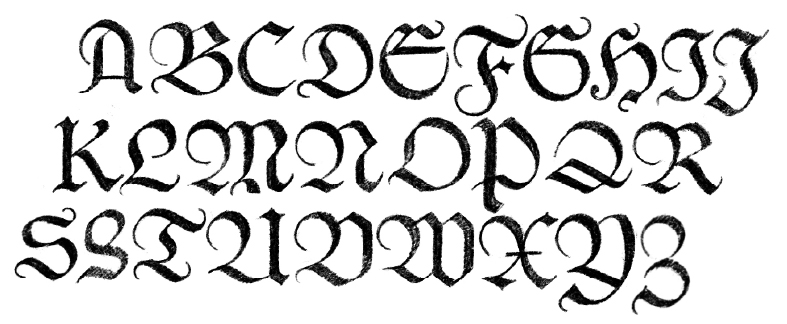 ABCDEFGHIJ
KLMNOPQR
SSTUVWXYZ